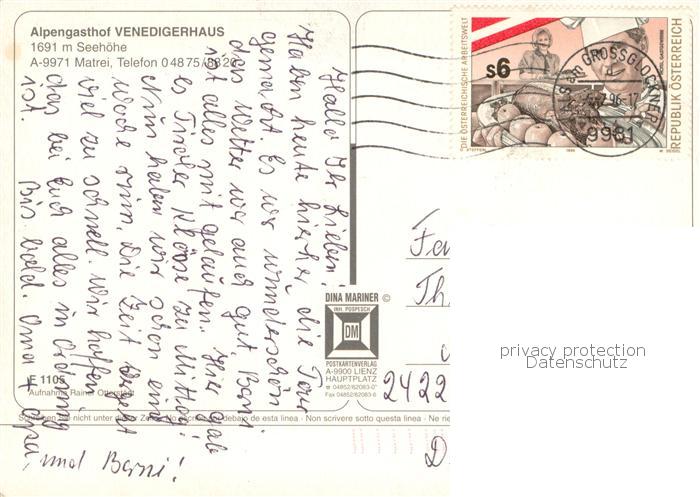 Alpengasthof VENEDIGERHAUS
1691 m Seehöhe
A-9971 Matrei, Telefon 04875/8820
Hallo Ihr Lieben!
Haben heute hierher die Tour
gemacht. Es war wunderschön
das Wetter war auch gut, Banni
ist alles mit gelaufen. Hier gab
es Tiroler Klösse zu Mittag!
Nun haben wir schon eine
Woche rum. Die Zeit vergeht
viel zu schnell. Wir hoffen,
das bei Euch alles in Ordnung
ist. Bis bald. Oma + Opa,
und Banni!
F 1105
Aufnahme Rainer Otterstädt
DINA MARINER ©
INH. POSPESCH
DM
POSTKARTENVERLAG
A-9900 LIENZ
HAUPTPLATZ
☎ 04852/62083-0
Fax 04852/62083-6
S6
DIE ÖSTERREICHISCHE ARBEITSWELT
REPUBLIK ÖSTERREICH
HOTEL GASTGEWERBE
1996
GROSSGLOCKNER
96-17
9981
Fa
Th
2422
D
privacy protection
Datenschutz
nicht unter dieser Zeile
debajo de esta linea - Non scrivere sotto questa linea - Ne rie